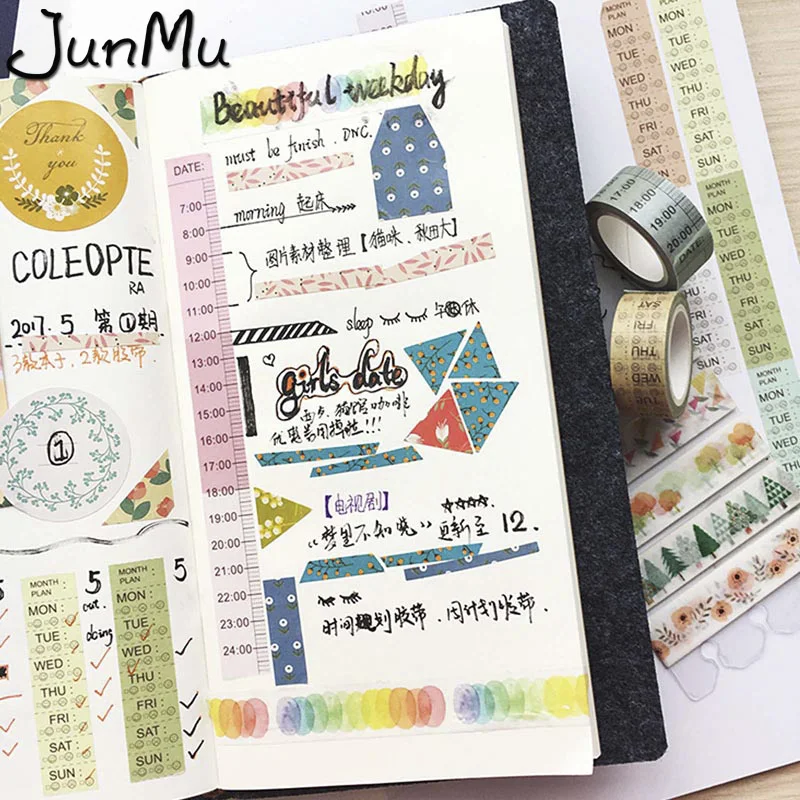 JunMu
Thank
you
COLEOPTE
RA
2017.5 第①期
3款本子、2款胶带
1
5
MONTH
PLAN
MON:
TUE
WED
THU
FRI
SAT
SUN:
5
out.
doing
MONTH
PLAN
MON:
TUE
WED
THU
FRI
SAT
SUN:
5
Beautiful weekday
DATE:
7:00
8:00
9:00
10:00
11:00
12:00
13:00
14:00
15:00
16:00
17:00
18:00
19:00
20:00
21:00
22:00
23:00
24:00
must be finish. DNC.
morning 起床
图片素材整理【猫咪、秋田犬】
sleep
午休
girls date
猫馆咖啡
!!!
【电视剧】
“梦里不知晓” 更新至 12.
时间规划胶带、周计划胶带.
MONTH
PLAN
MON:
TUE
WED
THU
FRI
SAT
SUN:
MON:
TUE
WED
THU
FRI
SAT
SUN:
17:00
18:00
19:00
20:00
DATE:
SAT
FRI
THU
WED
MONTH
PLAN
MON:
TUE
WED
THU
FRI
SAT
SUN:
MONTH
PLAN
MON:
TUE